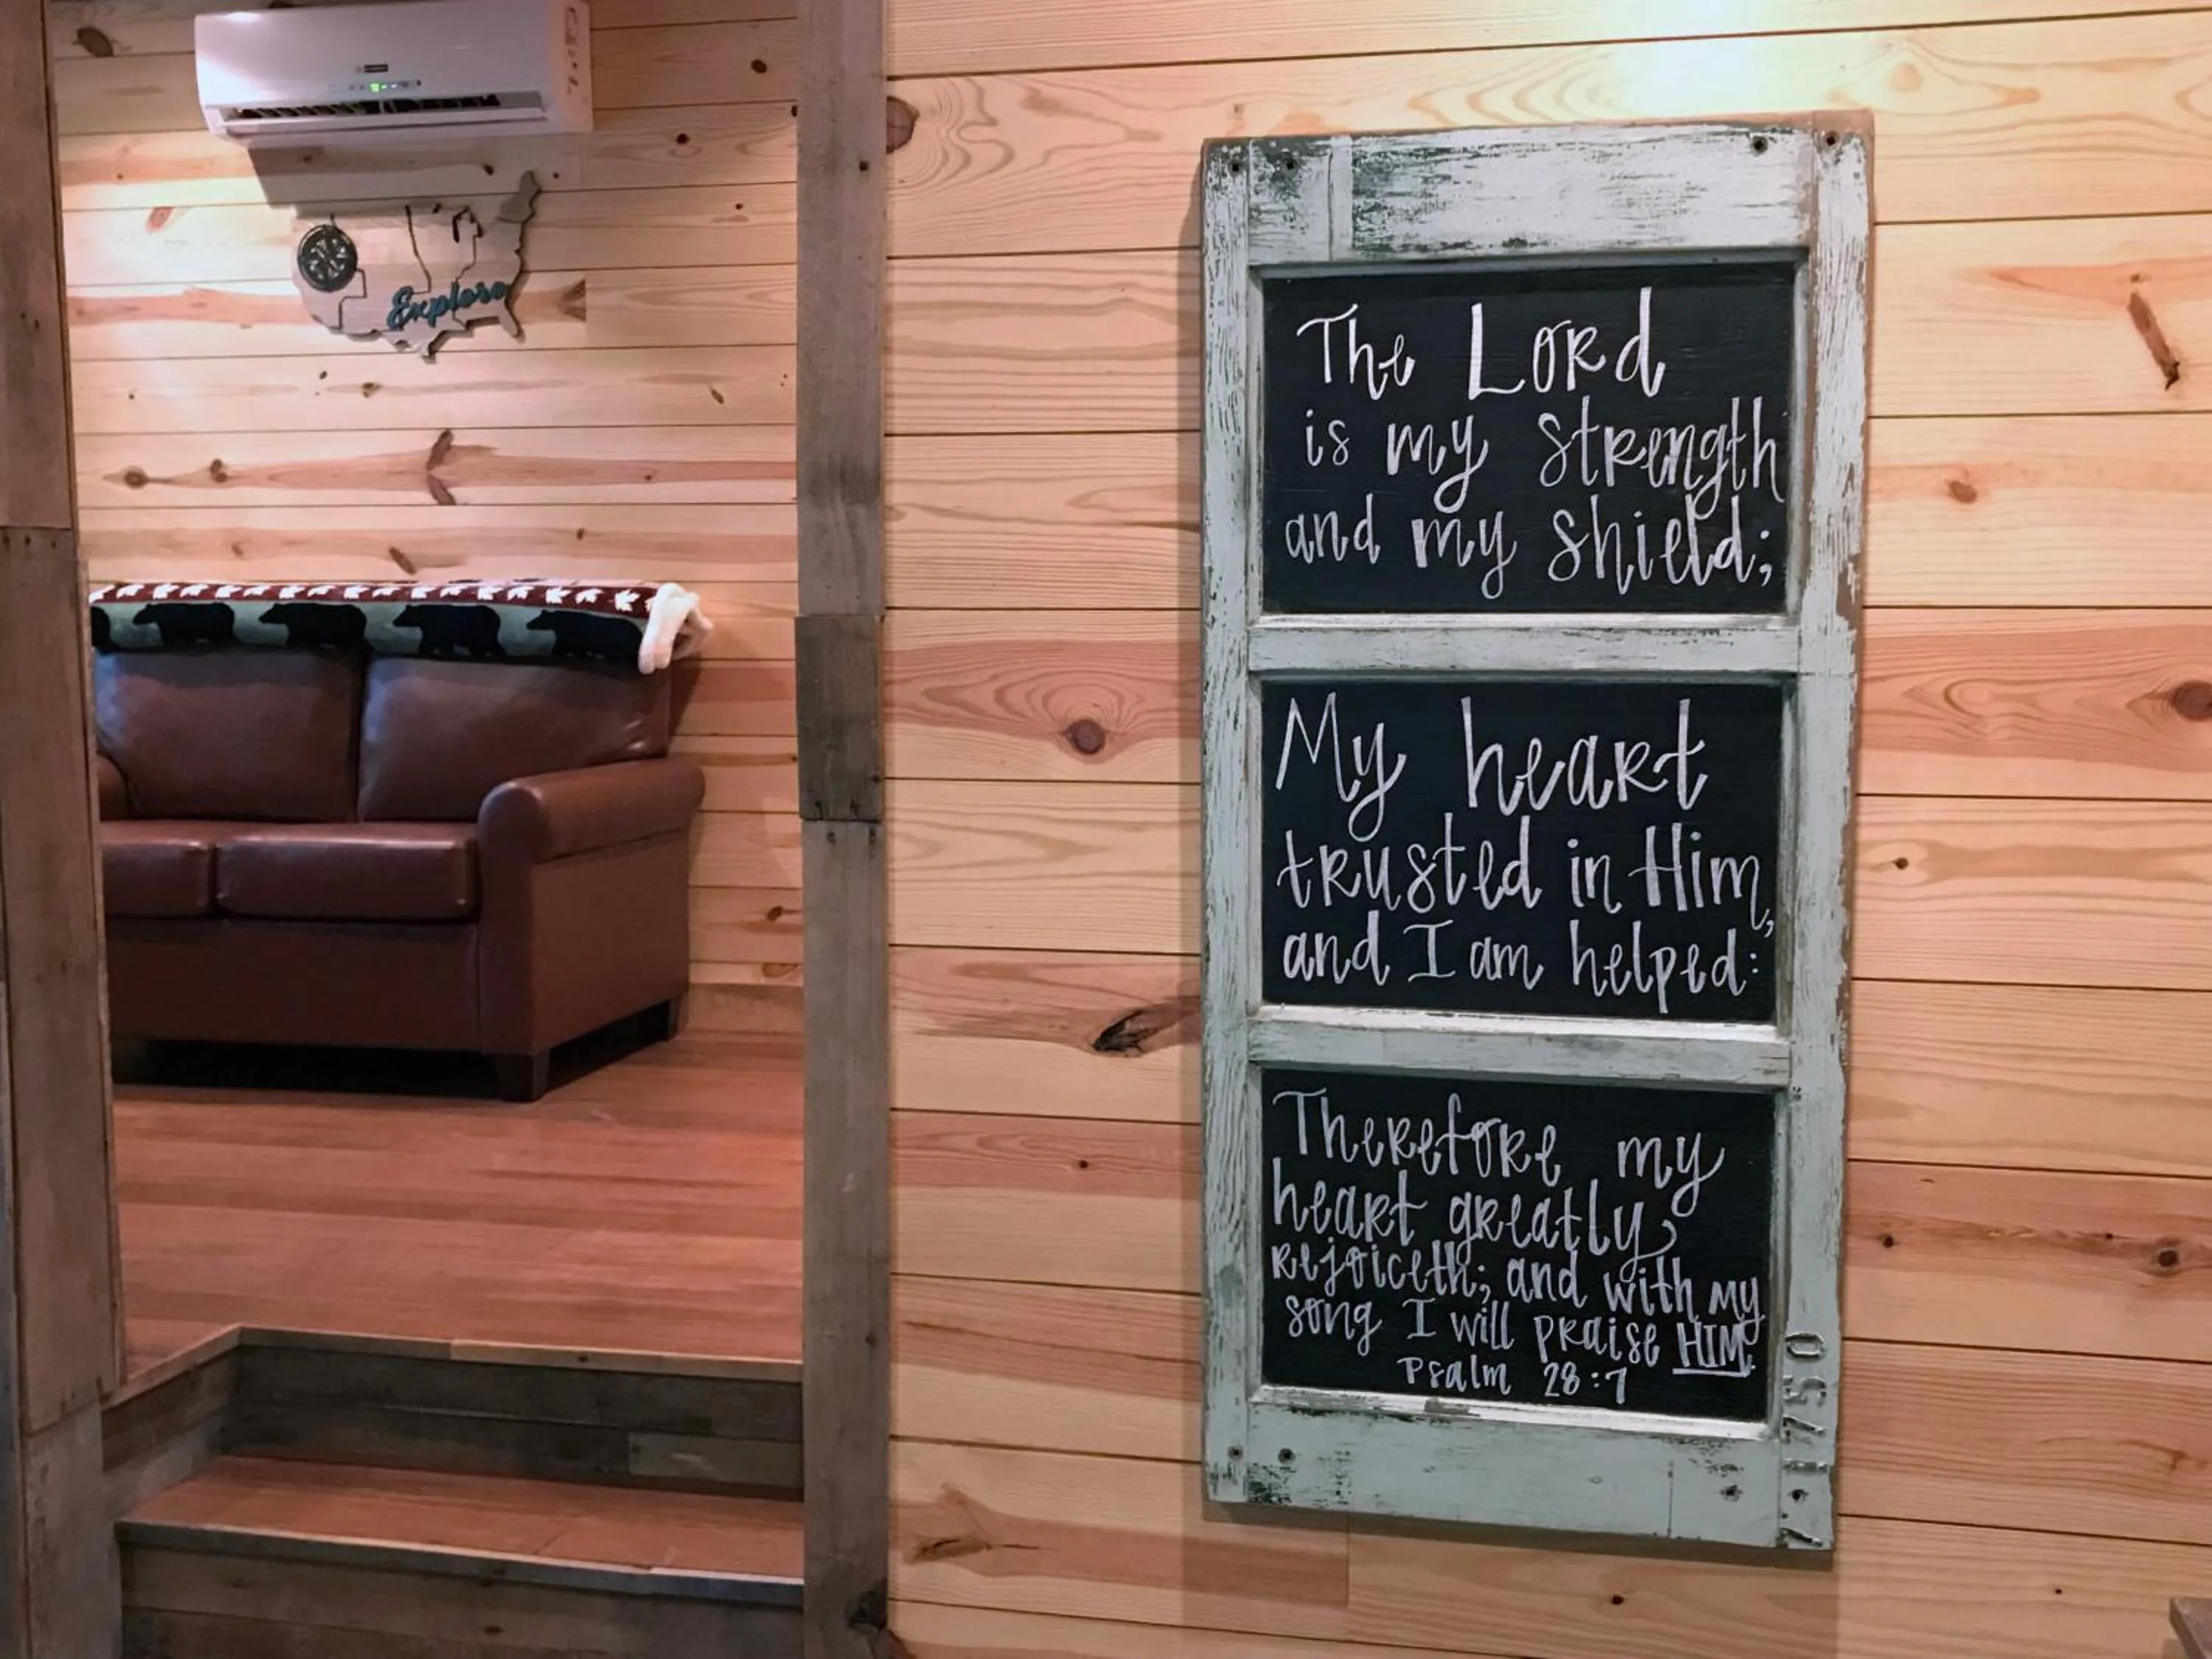 Explore
The Lord
is my strength
and my shield;
My heart
trusted in Him,
and I am helped:
Therefore my
heart greatly
rejoiceth; and with my
song I will praise HIM.
Psalm 28:7